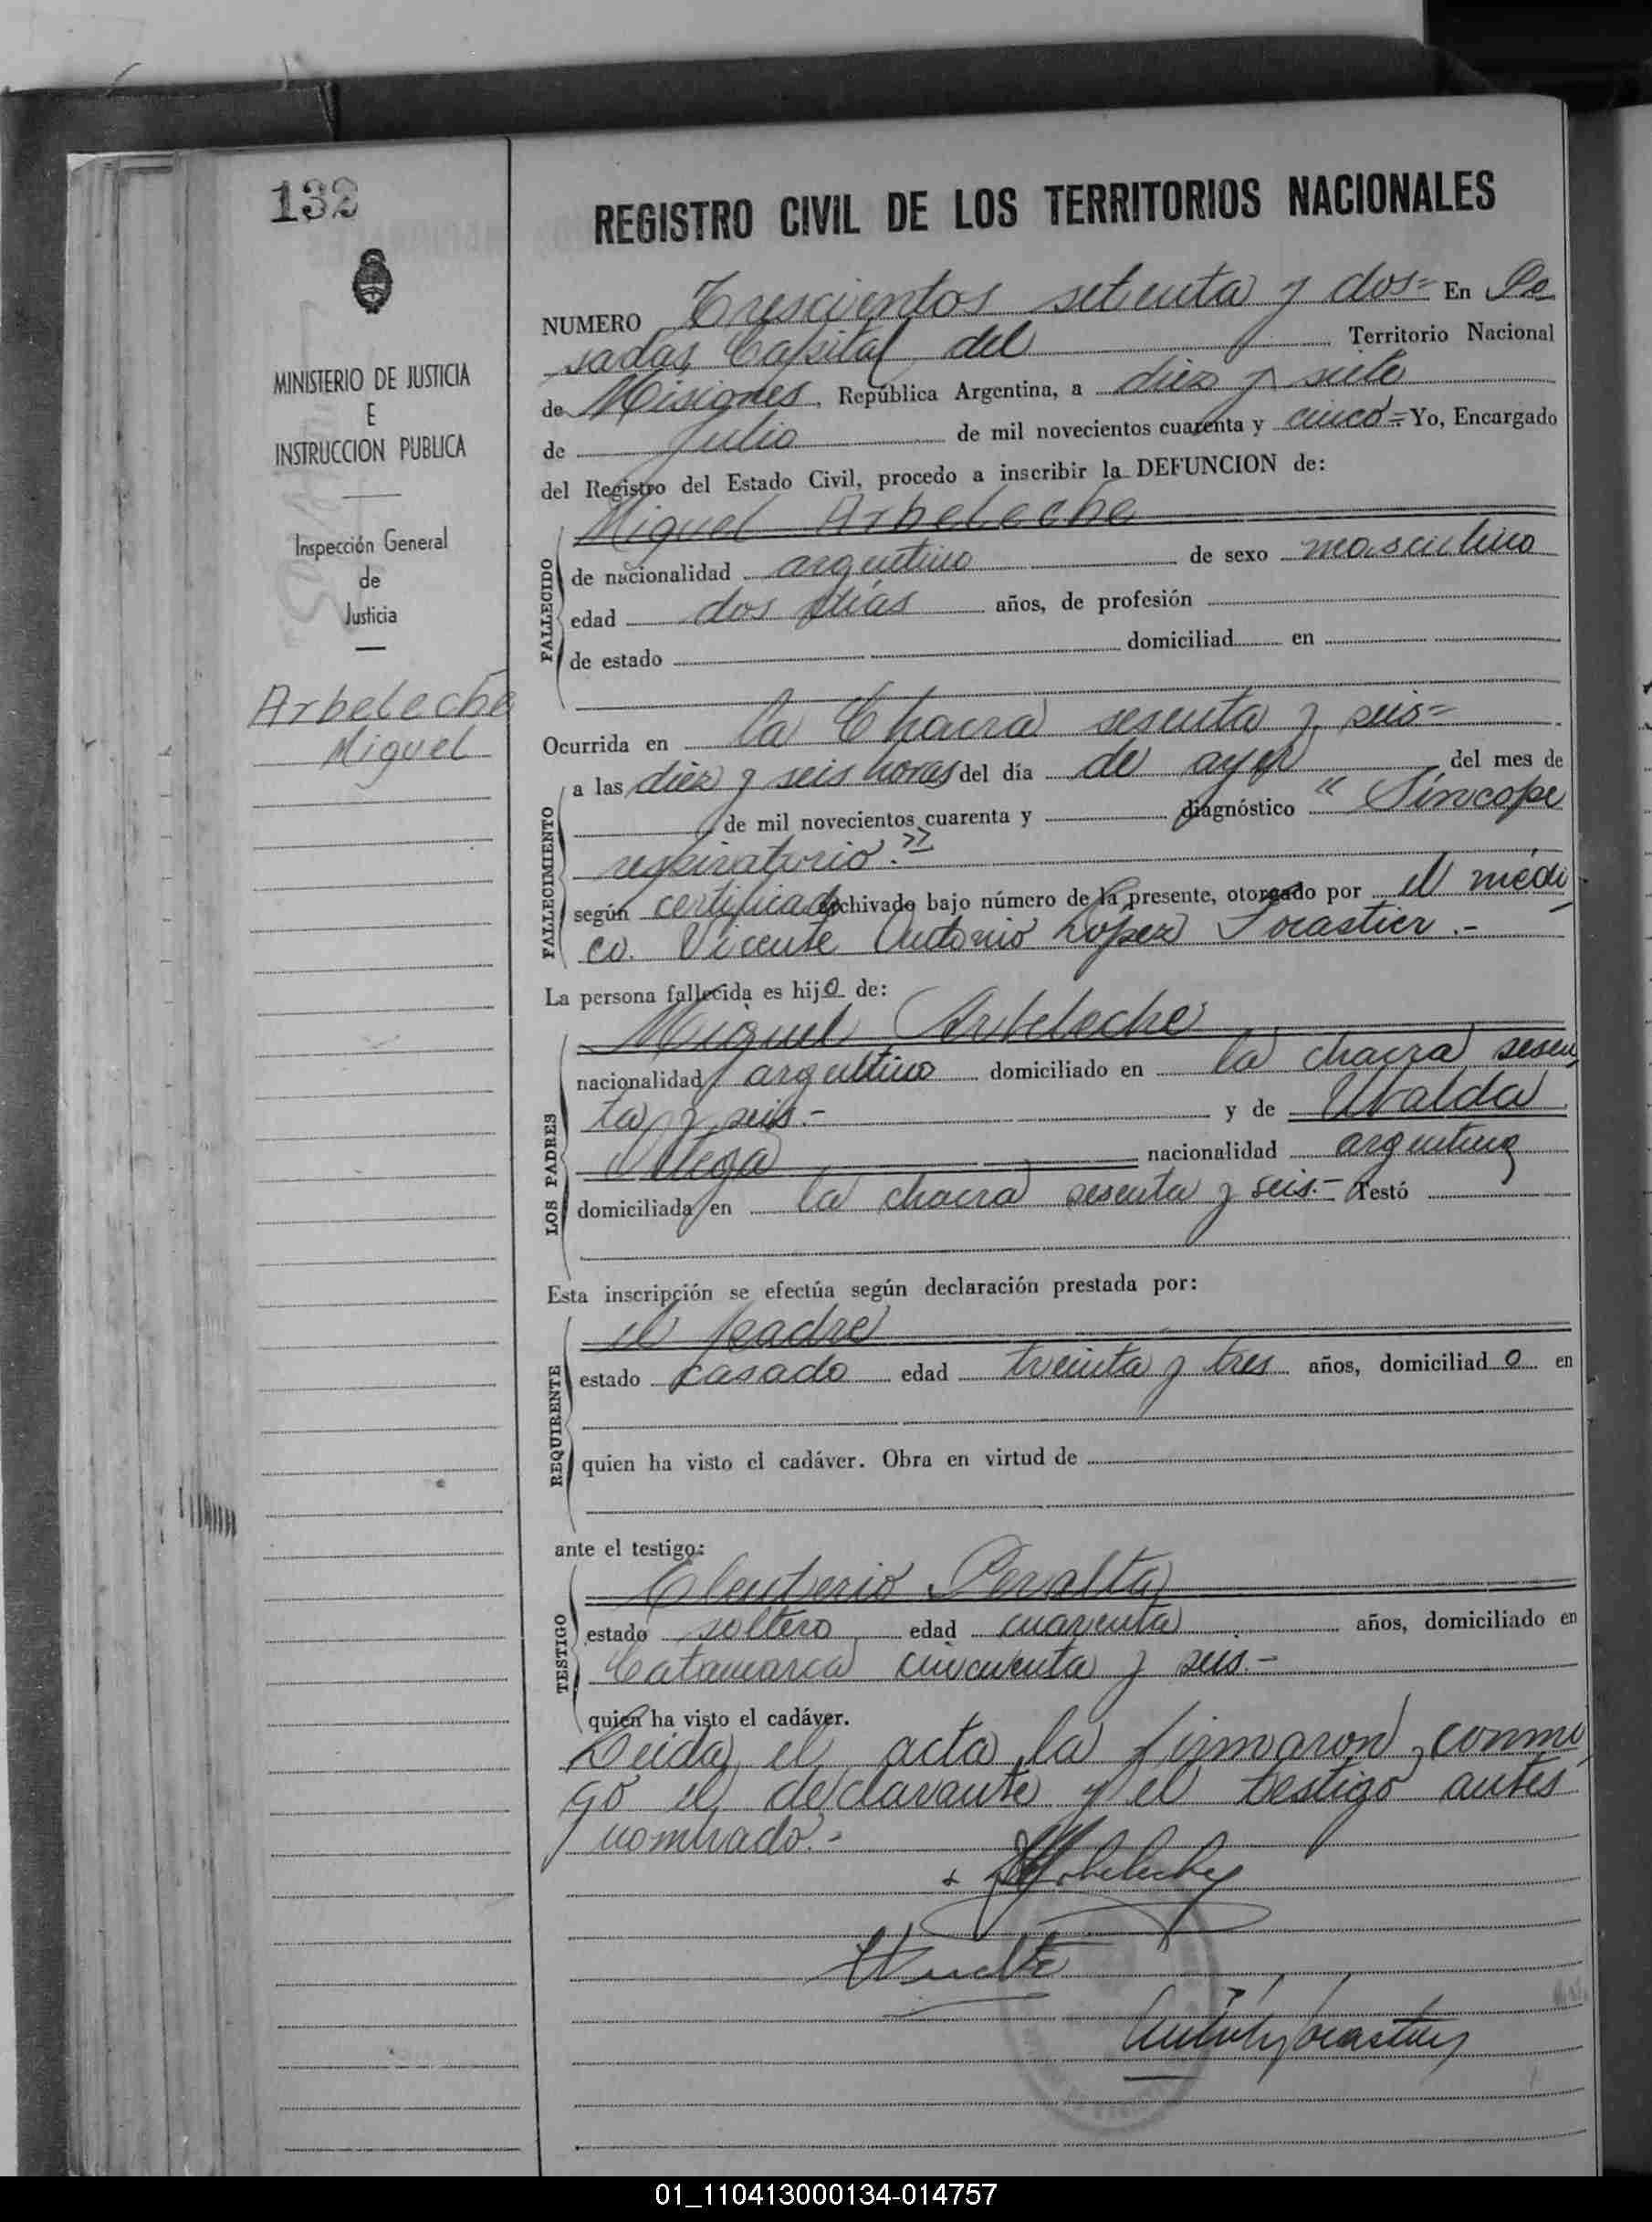 132
REGISTRO CIVIL DE LOS TERRITORIOS NACIONALES
MINISTERIO DE JUSTICIA
E
INSTRUCCION PUBLICA
Inspección General
de
Justicia
Arbeleche
Miguel
NUMERO Trescientos setenta y dos= En Po
sadas, Capital del Territorio Nacional
de Misiones, República Argentina, a diez y siete
de Julio de mil novecientos cuarenta y cinco= Yo, Encargado
del Registro del Estado Civil, procedo a inscribir la DEFUNCION de:
Miguel Arbeleche
FALLECIDO
de nacionalidad argentino de sexo masculino
edad dos días años, de profesión
de estado domiciliad en
Ocurrida en la Chacra sesenta y seis=
FALLECIMIENTO
a las diez y seis horas del día de ayer del mes de
de mil novecientos cuarenta y diagnóstico "Síncope
respiratorio."
según certificado archivado bajo número de la presente, otorgado por el médi
co. Vicente Antonio López Forastier.-
La persona fallecida es hijo de:
LOS PADRES
Miguel Arbeleche
nacionalidad argentino domiciliado en la chacra sesen
ta y seis.- y de Ubalda
nacionalidad argentina
domiciliada en la chacra sesenta y seis.- Testó
Esta inscripción se efectúa según declaración prestada por:
REQUIRENTE
el padre
estado casado edad treinta y tres años, domiciliado en
quien ha visto el cadáver. Obra en virtud de
ante el testigo:
TESTIGO
Eleuterio Peralta
estado soltero edad cuarenta años, domiciliado en
Catamarca cincuenta y seis.-
quien ha visto el cadáver.
Leida el acta la firmaron conmi
go el declarante y el testigo antes
nombrado.-
Arbeleche
01_110413000134-014757